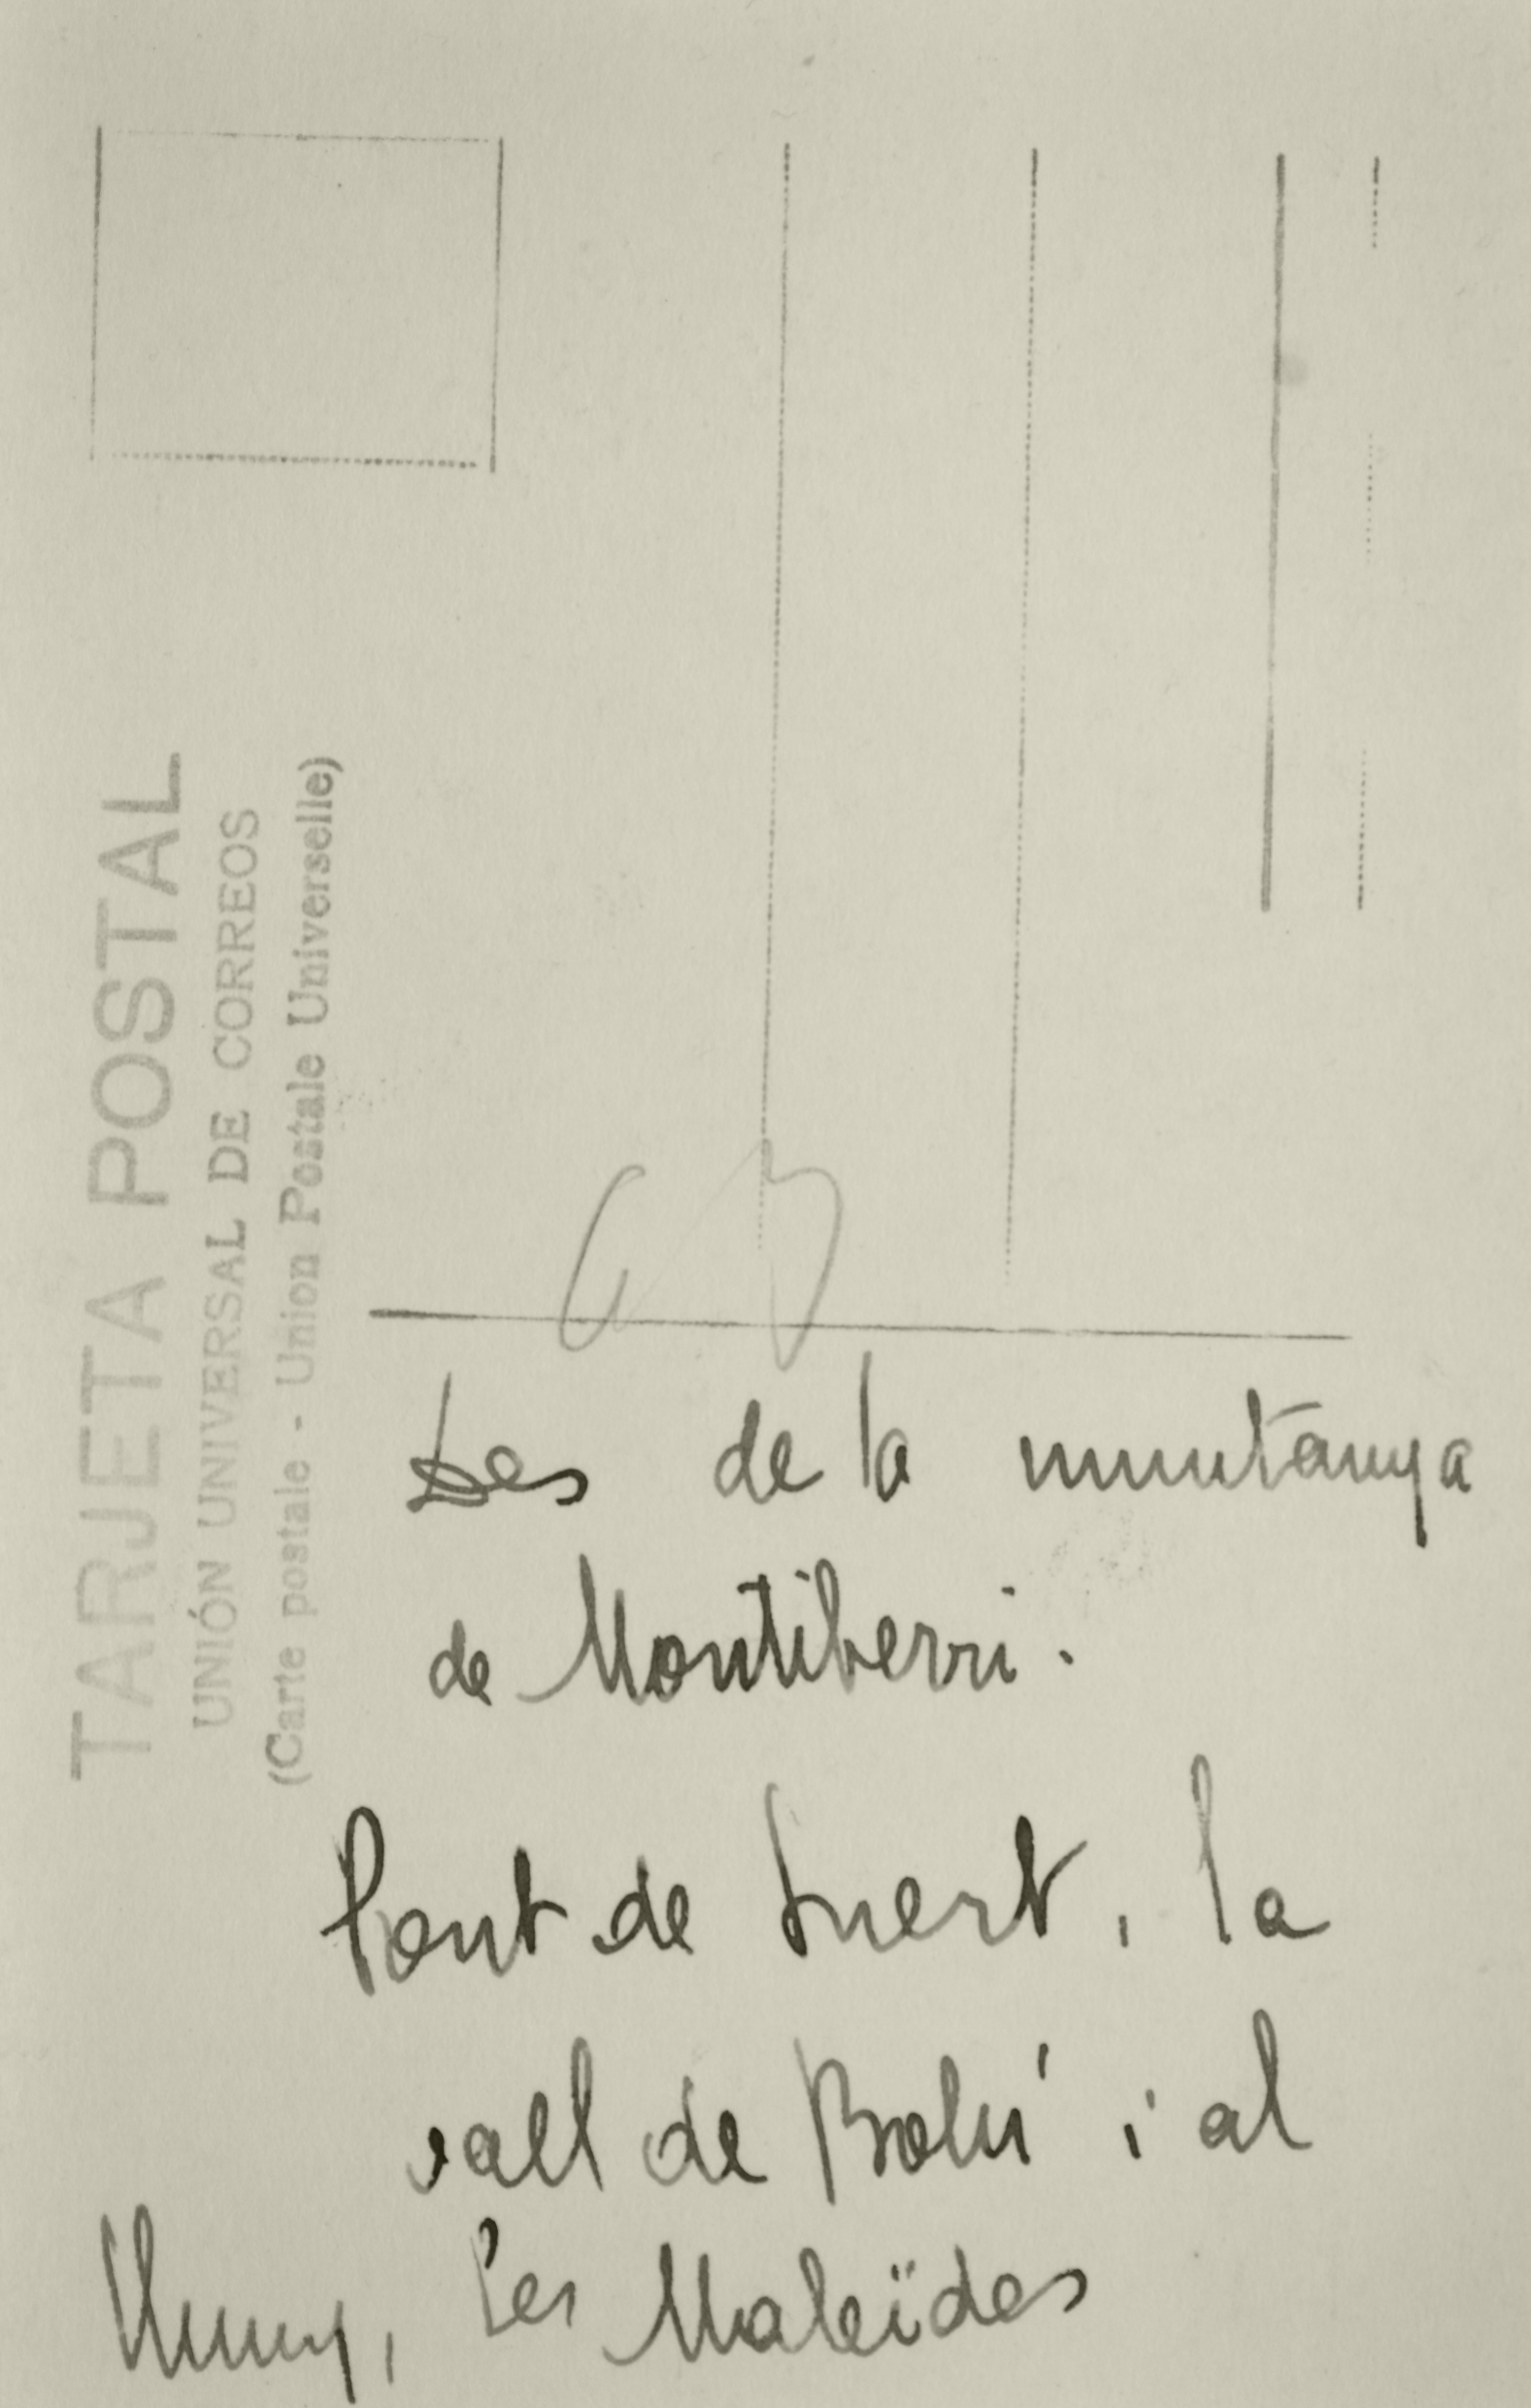 TARJETA POSTAL
UNIÓN UNIVERSAL DE CORREOS
(Carte postale - Union Postale Universelle)
Des de la muntanya
de Montiberri.
Pont de Suert, la
vall de Bohí i al
lluny, Les Maleïdes